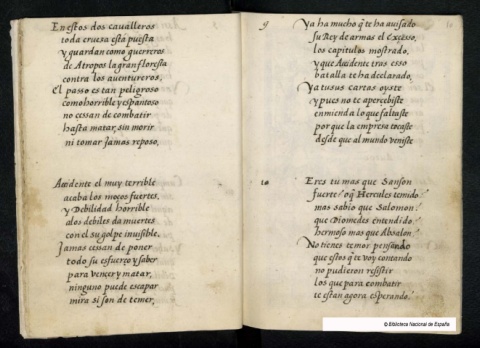 En estos dos cavalleros
toda crueza esta puesta
y guardan como guerreros
de Atropos la gran floresta
contra los aventureros,
El passo es tan peligroso
como horrible y espantoso
no cessan de combatir
hasta matar, sin morir
ni tomar Jamas reposo,
Accidente el muy terrible
acaba los moços fuertes,
y Debilidad horrible
a los debiles da muertes
con el su golpe inuisible.
Jamas cessan de poner
todo su esfuerço y saber
para vençer y matar,
ninguno puede escapar
mira si son de temer,
9 Ya ha mucho q̃ te ha auisado
su Rey de armas el Excesso,
los capitulos mostrado,
y que Accidente tras esso
batalla te ha declarado,
Ya tu sus cartas oyste
y pues no te apercebiste
enmienda lo que faltaste
por que la empresa tocaste
desde que al mundo veniste
10 Eres tu mas que Sanson
fuerte? o q̃ Hercules temido
mas sabio que Salomon
que Diomedes entendido
hermoso mas que Absalon,
No tienes temor pensando
que estos q̃ te voy contando
no pudieron resistir
los que para combatir
te estan agora esperando.
10
© Biblioteca Nacional de España